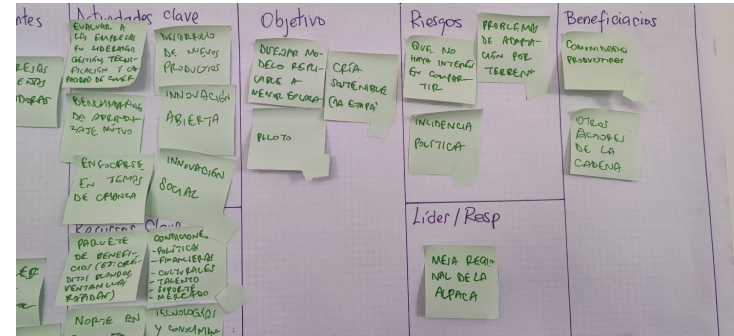 ntes
Actividades clave
EVALUAR A
LAS EMPRESAS
EN LIDERAZGO
GESTIÓN, TECNI-
FICACIÓN Y CA
PACIDAD DE
DESARROLLO
DE NUEVOS
PRODUCTOS
BENCHMARKING
DE APRENDI
ZAJE MUTUO
INNOVACIÓN
ABIERTA
ENFOCARSE
EN TEMAS
DE CRIANZA
INNOVACIÓN
SOCIAL
Recursos Clave
PAQUETE
DE BENEFI-
CIOS (EJ: CRE
DITOS BLANDOS
VENTANILLAS
RÁPIDAS)
CONDICIONES
- POLÍTICAS
- FINANCIERAS
- CULTURALES
- TALENTO
- SOPORTE
- MERCADO
NORTE EN
TECNOLOGÍAS
Objetivo
DISEÑAR MO-
DELO REPLI-
CABLE A
MENOR ESCALA
CRÍA
SOSTENIBLE
(1A ETAPA)
PILOTO
Riesgos
QUE NO
HAYA INTERÉS
EN COMPAR-
TIR
PROBLEMAS
DE ADAPTA-
CIÓN POR
TERRENO
INCIDENCIA
POLÍTICA
Líder/Resp
MESA REGIO
NAL DE LA
ALPACA
Beneficiacios
COMUNIDADES
PRODUCTORAS
OTROS
ACTORES
DE LA
CADENA